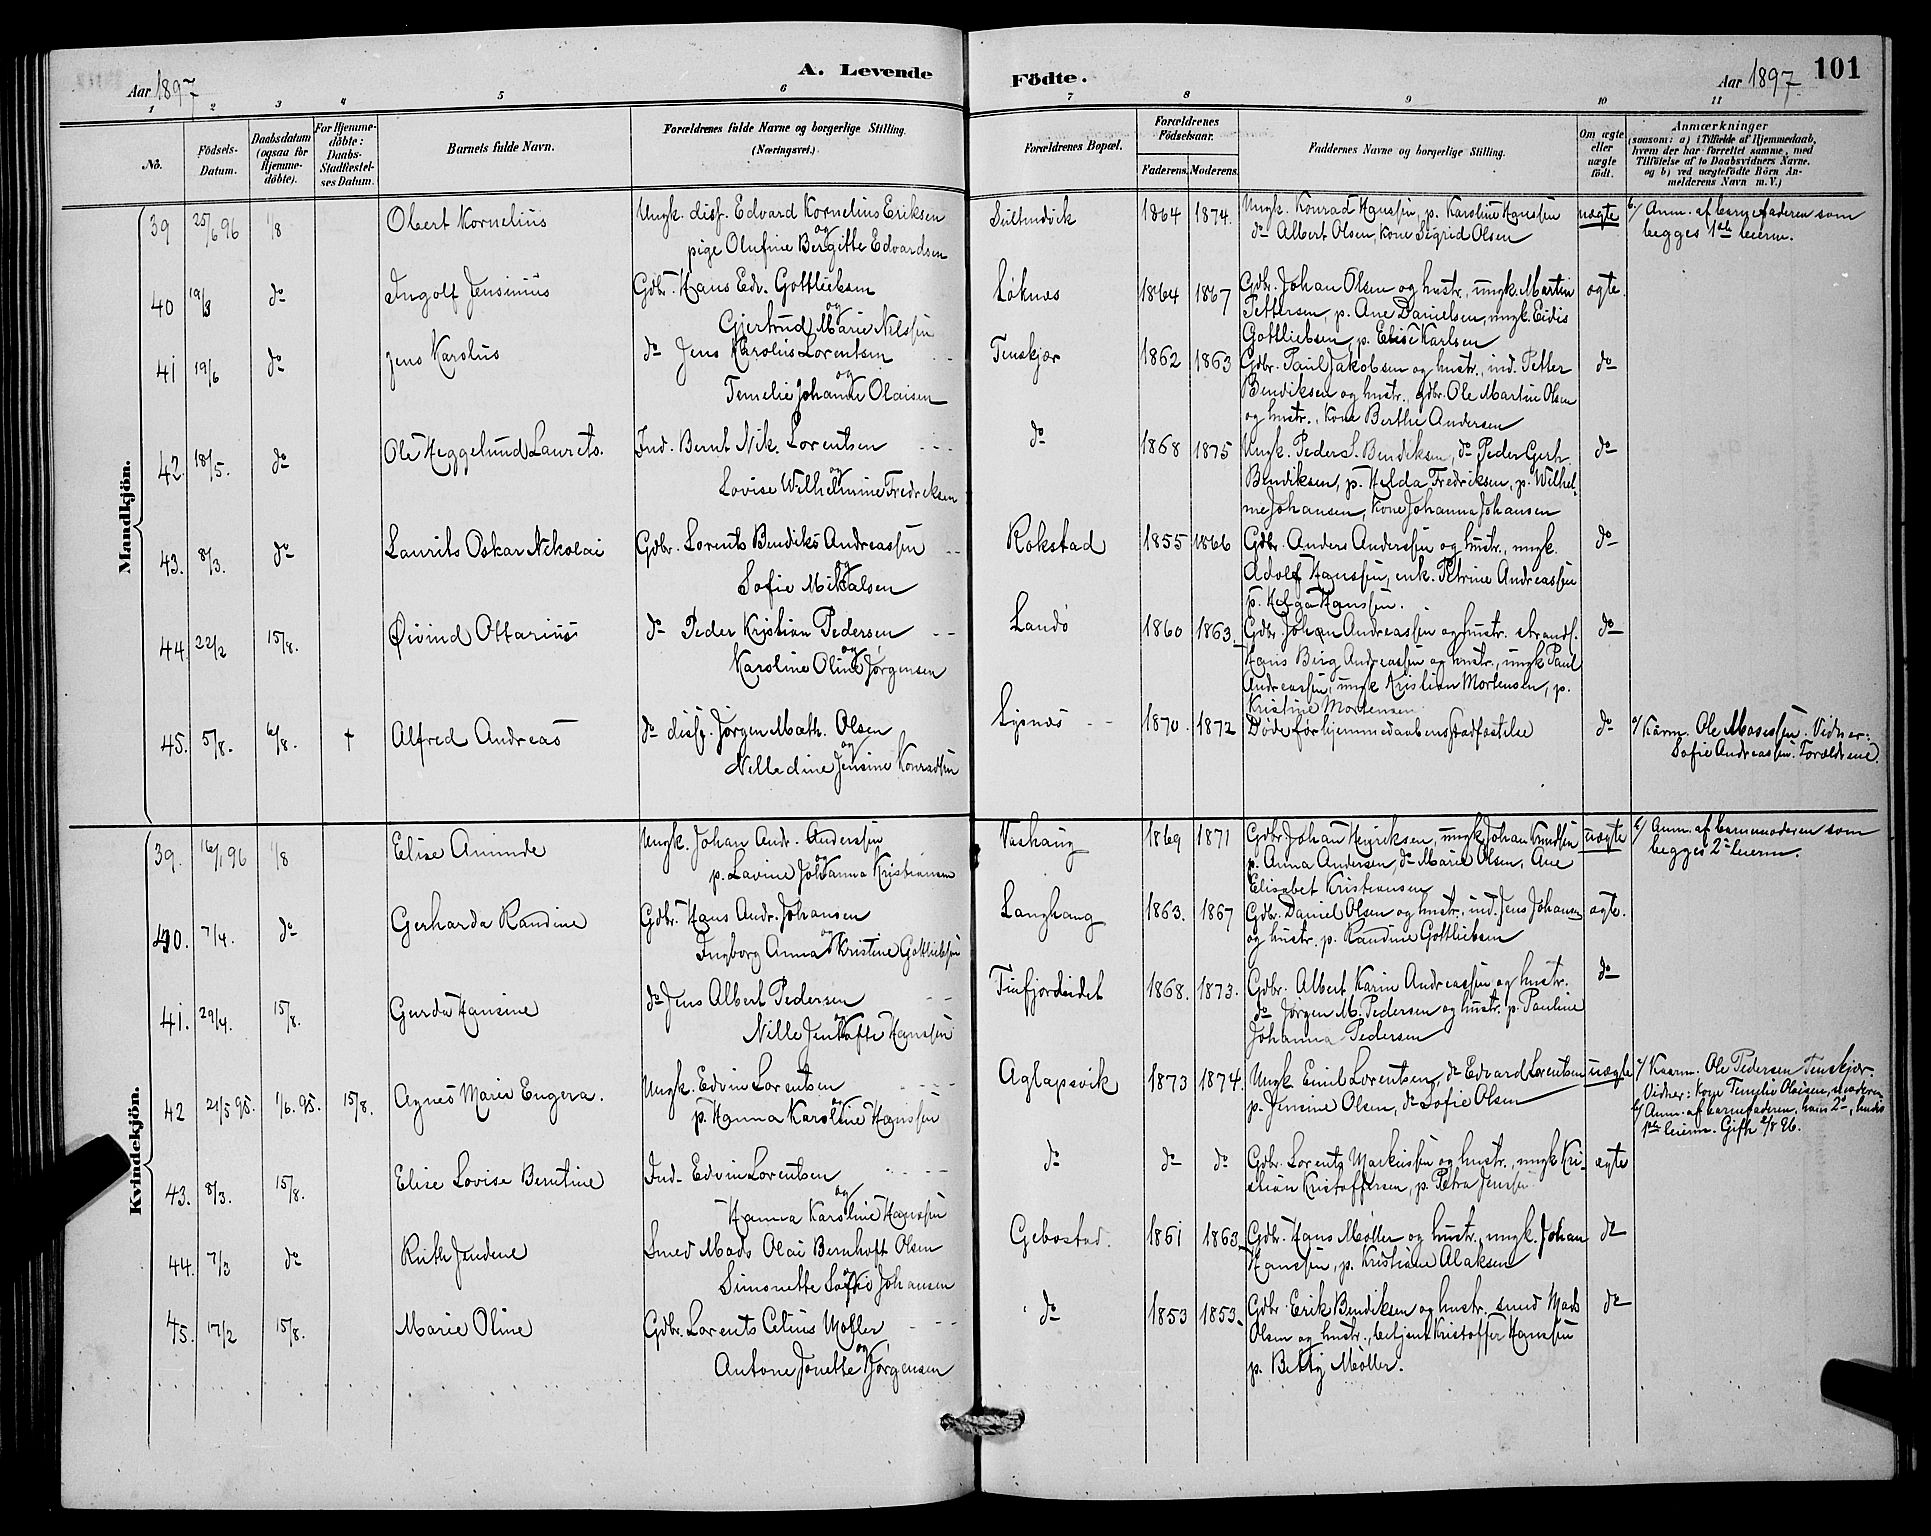 A. Levende Födte.
Aar 1897
Aar 1897
101
1 2 3 4 5 6 7 8 9 10 11
No.
Födsels-Datum.
Daabsdatum (ogsaa for Hjemme-döbte).
For Hjemme-döbte: Daabs-Stadfæstel-ses Datum.
Barnets fulde Navn.
Forældrenes fulde Navne og borgerlige Stilling.
(Næringsvei.)
Forældrenes Bopæl.
Forældrenes Födselsaar.
Faderens. Moderens.
Faddernes Navne og borgerlige Stilling.
Om ægte eller uægte födt.
Anmærkninger
(saasom: a) i Tilfælde af Hjemmedaab, hvem der har forrettet samme, med Tilföielse af to Daabsvidners Navne, og b) ved uægtefödte Börn An-melderens Navn m. V.)
Mandkjön.
39 25/6 96 1/8 Obert Kornelius Ungk. disp. Edvard Kornelius Eriksen
og
pige Olufine Bergitte Edvardsen
1864 1874. Ungk. Konrad Hanssen, p. Karoline Hanssen
do Albert Olsen, Kone Sigrid Olsen
uægte
b/ Anm. af barnefaderen som
begges 1ste leierm.
40 19/3 do Ingolf Jensinius Gdbr. Hans Edv. Gottliebsen
og
Gjertrud Marie Nilssen
Løknes 1864 1867 Gdbr. Johan Olsen og hustr., ungk. Martin
Pettersen, p. Ane Danielsen, ungk. Eidis
Gottliebsen, p. Elise Karlsen
ægte.
41 19/6 do Jens Karolius do Jens Karolius Lorentsen
og
Temelie Johanne Olaisen
Tenskjær 1862 1863 Gdbr. Paul Jakobsen og hustr., ind. Petter
Bendiksen og hustr., gdbr. Ole Martin Olsen
og hustr., Kone Berthe Andersen
do
42. 18/5. do Ole Heggelund Laurits. Ind. Bernt Nik. Lorentsen
og
Lovise Wilhelmine Fredriksen
do 1868 1875 Ungk. Peder S. Bendiksen, do Peder Gerh.
Bendiksen, p. Helda Fredriksen, p. Wilhel-
me Johansen, Kone Johanna Johansen
do
43. 8/3. do Laurits Oskar Nikolai Gdbr. Lorents Bendiks Andreassen
og
Sofie Mikalsen
Rokstad 1855 1866 Gdbr. Anders Anderssen og hustr., ungk.
Adolf Hanssen, enk. Petrine Andreassen
p. Helga Hanssen.
do
44. 22/2 15/8. Øivind Ottarius do Peder Kristian Pedersen
og
Karoline Oline Jørgensen
Landø 1860 1863. Gdbr. Johan Andreassen og hustr. strands.
Hans Berg Andreassen og hustr., ungk. Paul
Andreassen, ungk. Kristian Mortensen, p.
Kristine Mortensen
do
45. 5/8. 6/8. † Alfred Andreas do disp. Jørgen Math. Olsen
og
Nille dine Jensine Konradsen
Lysnes 1870. 1872 Døde før hjemmedaabens stadfæstelse do
a/ Kårm. Ole Mosessen. Vidner:
Sofie Andreassen. Forældrene.
Kvindekjön.
39. 16/1 96 1/8 Elise Aminde Ungk. Johan Andr. Anderssen
og
p. Lavine Johanna Kristiansen
Vashaug 1869 1871 Gdbr. Johan Henriksen, ungk. Johan Knudsen
p. Anna Andersen, do Marie Olsen, Ane
Elisabet Kristiansen
uægte
b/ Anm. af barnemoderen som
begges 2de leierm.
40. 7/4. do Gerharda Randine Gdbr. Hans Andr. Johansen
og
Ingborg Anna Kristine Gottliebsen
Langhaug 1863. 1867 Gdbr. Daniel Olsen og hustr., ind. Jens Johansen
og hustr. p. Randine Gottliebsen
ægte.
41. 29/4. 15/8. Gurda Hansine do Jens Albert Pedersen
og
Nille Jentofte Hanssen
Finfjordeidet 1868. 1873. Gdbr. Albert Karin Andreassen og hustr.
do Jørgen M. Pedersen og hustr. p. Pauline
Johanna Pedersen
do
42 21/5 95. 1/6. 95. 15/8. Agnes Marie Eugera. Ungk. Edvin Lorentsen
og
p. Hanna Karoline Hanssen
Aglapsvik 1873 1874. Ungk. Emil Lorentsen, do Edvard Lorentsen
p. Jensine Olsen, do Sofie Olsen
uægte
a/ Kaarm. Ole Pedersen Tenskjær.
Vidner: Kone Temelie Olaisen, moderen
b/ Anm. af barnefaderen, hans 2de, hendes
1ste leierm. Gift 2/8 96.
43. 8/3. 15/8. Elise Lovise Berntine Ind. Edvin Lorentsen
og
Hanna Karoline Hanssen
do do do Gdbr. Lorents Markussen og hustr., ungk. Kri-
stian Kristoffersen, p. Petra Jenssen
ægte
44. 7/3 do Ruth Jendine Smed Mads Olai Bernhoft Olsen
og
Simonette Sofie Johansen
Gebostad. 1861 1863 Gdbr. Hans Møller og hustr., ungk. Johan
Hanssen, p. Kristiane Alaksen
do
45. 17/2 15/8. Marie Oline Gdbr. Lorents Celius Møller
og
Antone Jonette Jørgensen
do 1853 1853. Gdbr. Erik Bendiksen og hustr. smed Mads
Olsen og hustr., betjent Kristoffer Hanssen
p. Betty Møller.
do